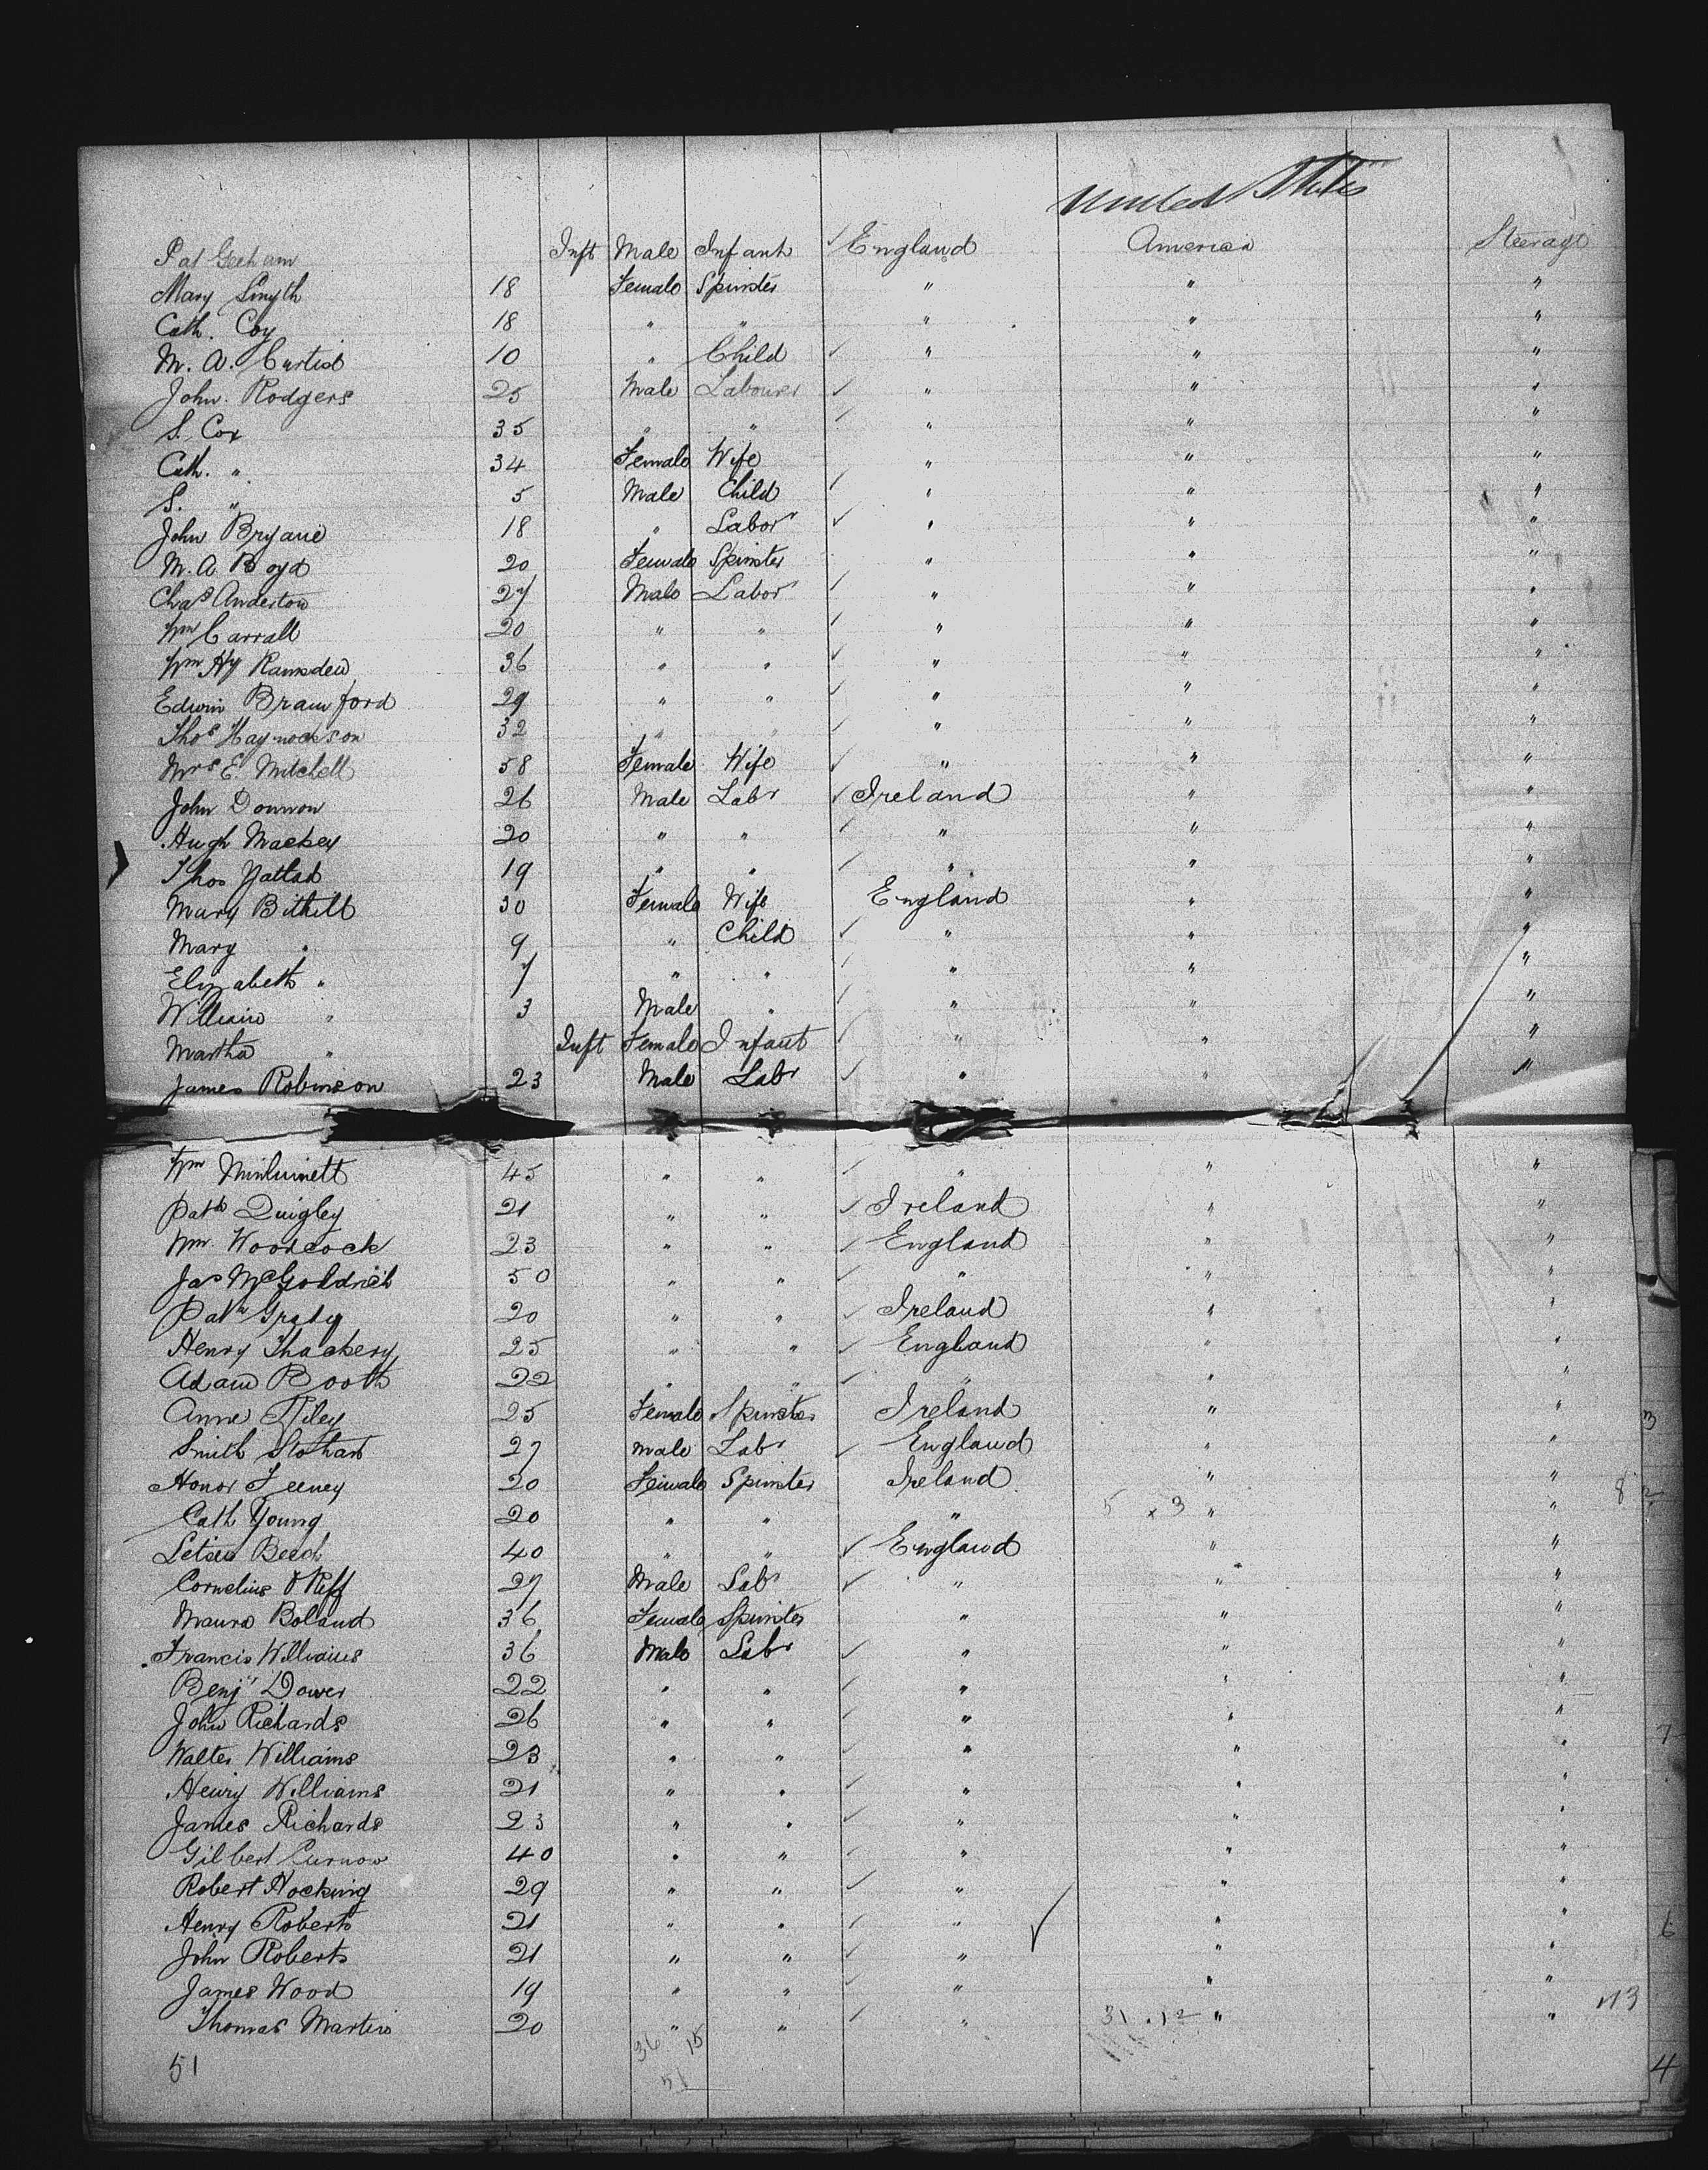 United States
Pat Geeham Inft Male Infant ✓ England America Steerage
Mary Smyth 18 Female Spinster " " "
Cath. Coy 18 " " " " "
M. A. Curtis 10 " Child ✓ " " "
John Rodgers 25 Male Labourer ✓ " " "
S. Cox 35 " " ✓ " " "
Cath. " 34 Female Wife " " "
S. " 5 Male Child ✓ " " "
John Bryane 18 " Labor ✓ " " "
M. A. Boyd 20 Female Spinster " " "
Chas Anderton 27 Male Labor ✓ " " "
Wm Carrall 20 " " ✓ " " "
Wm Hy Ramsden 36 " " ✓ " " "
Edwin Bramford 29 " " ✓ " " "
Thos Haynockson 32 " " ✓ " " "
Mrs E. Mitchell 58 Female Wife ✓ " " "
John Donnon 26 Male Labr ✓ Ireland " "
Hugh Mackey 20 " " ✓ " " "
Thos 19 " " ✓ " " "
Mary Bithell 30 Female Wife England " "
Mary " 9 " Child ✓ " " "
Elizabeth " 7 " " ✓ " " "
William " 3 Male " ✓ " " "
Martha " Inft Female Infant ✓ " " "
James Robinson 23 Male Labr ✓ " " "
Wm 45 " " ✓ " " "
Patk Quigley 21 " " ✓ Ireland " "
Wm Woodcock 23 " " ✓ England " "
Jas McGoldrick 50 " " ✓ " " "
Patk Grady 20 " " ✓ Ireland " "
Henry Thackery 25 " " ✓ England " "
Adam Booth 22 " " ✓ " " "
Anne 25 Female Spinster Ireland " "
Smith Stothart 27 Male Labr ✓ England " "
Honor Feeney 20 Female Spinster Ireland " "
Cath Young 20 " " " 5 x 3 " "
Beech 40 " " ✓ England " "
Cornelius O'Keff 27 Male Labr ✓ " " "
Maura Boland 36 Female Spinster " " "
Francis Williams 36 Male Labr ✓ " " "
Benjn Dower 22 " " ✓ " " "
John Richards 26 " " ✓ " " "
Walter Williams 23 " " ✓ " " "
Henry Williams 21 " " ✓ " " "
James Richards 23 " " ✓ " " "
Gilbert Curnow 40 " " ✓ " " "
Robert Hocking 29 " " ✓ " " "
Henry Roberts 21 " " ✓ " ✓ " "
John Roberts 21 " " ✓ " " "
James Wood 19 " " ✓ " " "
Thomas Martin 20 " " ✓ " 31 . 12 " "
36 15
51
51